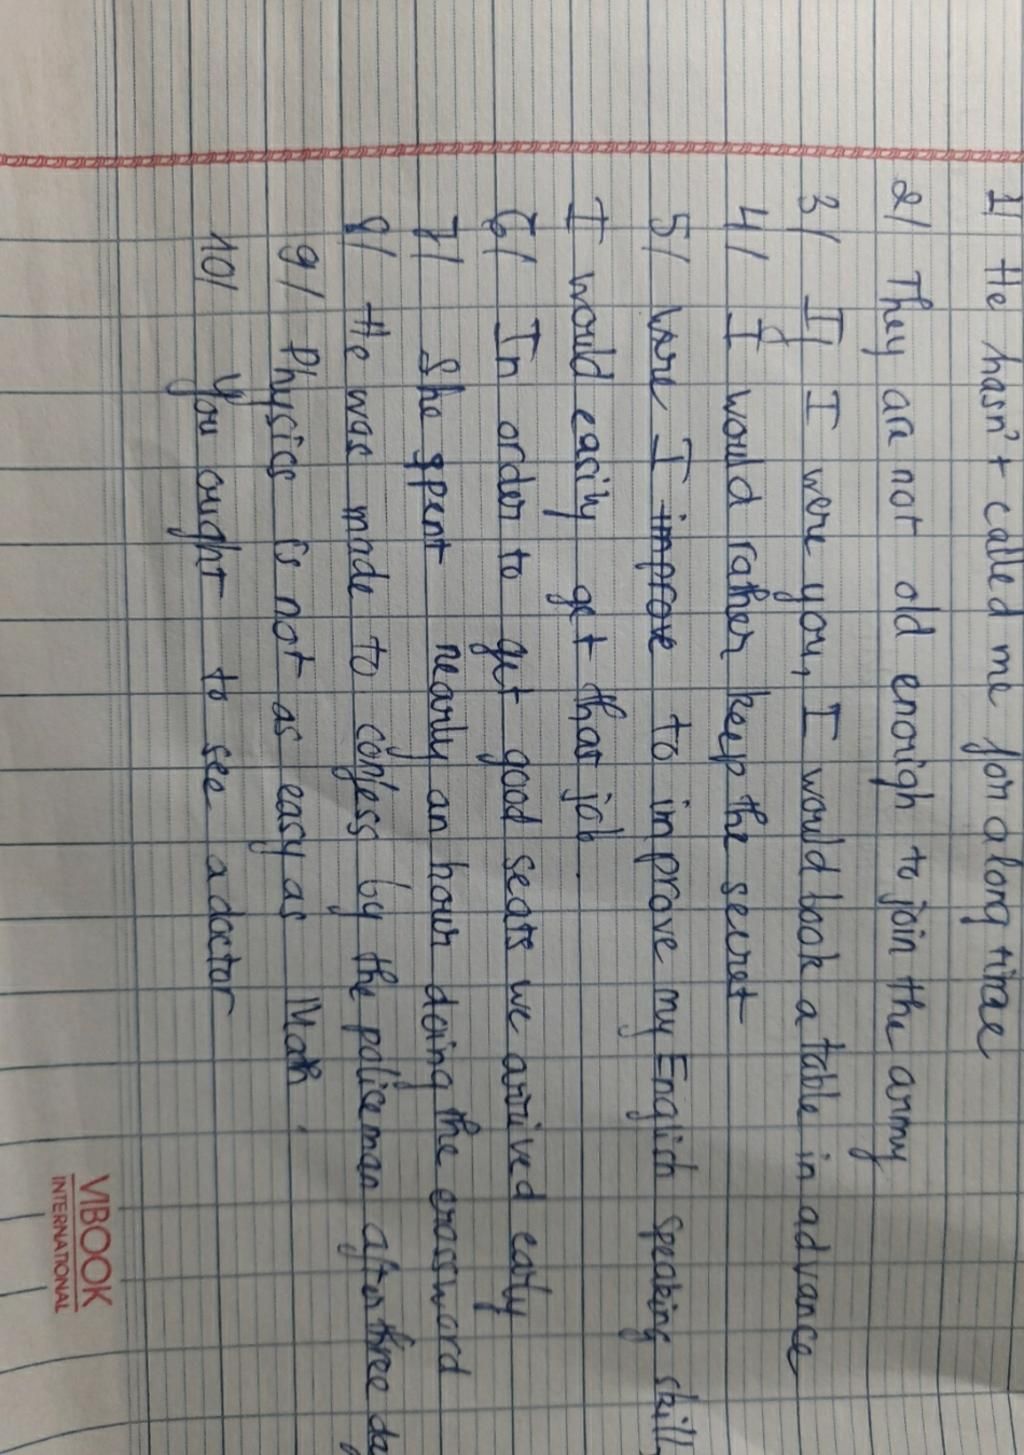 1/ He hasn't called me for a long time
2/ They are not old enough to join the army
3/ If I were you, I would book a table in advance
4/ I would rather keep the secret
5/ Were I improve to improve my English speaking skill,
I would easily get that job.
6/ In order to get good seats we arrived early
7/ She spent nearly an hour doing the crossword
8/ He was made to confess by the policeman after three
9/ Physics is not as easy as Math.
10/ You ought to see a doctor
VIBOOK
INTERNATIONAL